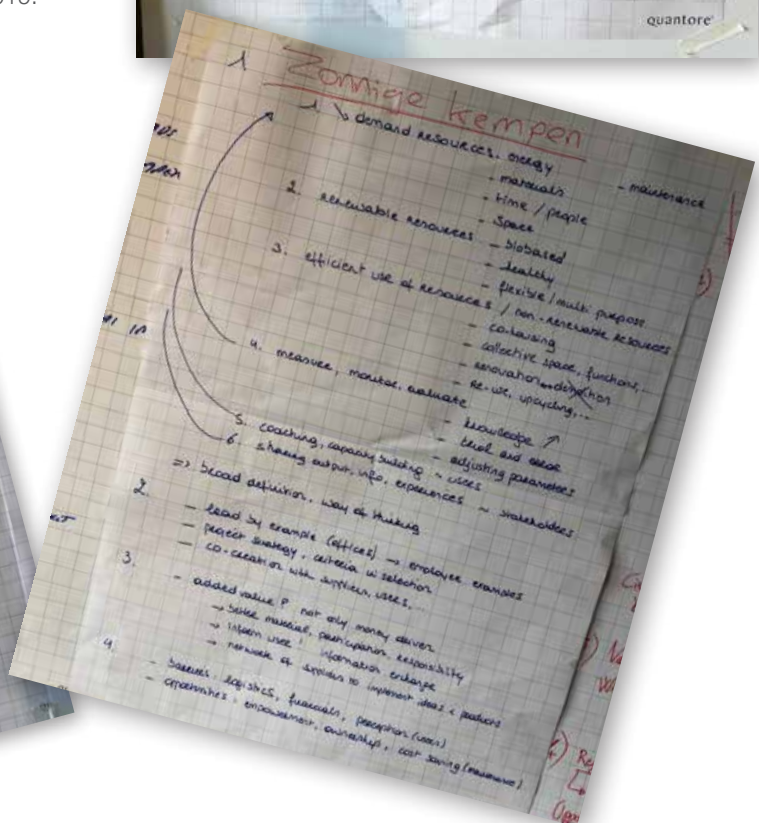 quantore
1 Zonnige kempen
1 ↘ demand resources, energy
- materials
- maintenance
- time / people
- space
2. renewable resources - biobased
- healthy
- flexible / multi purpose
3. efficient use of resources / non-renewable resources
- co-housing
- collective space, functions, ..
- renovation
- re-use, upcycling, ..
4. measure, monitor, evaluate
- knowledge ↗
- trial and error
- adjusting parameters
5. coaching, capacity building ~ users
6. sharing output, info, experiences ~ stakeholders
=> broad definition, way of thinking
2.
- lead by example (offices) → employee examples
- project strategy, criteria in selection
- co-creation with suppliers, users, ..
3.
- added value not only money driven
→ better material, participation, responsibility
→ inform user information exchange
→ network of suppliers to implement ideas + products
4.
- barriers: logistics, financials, perception (users)
- opportunities: empowerment, ownership, cost saving (maintenance)